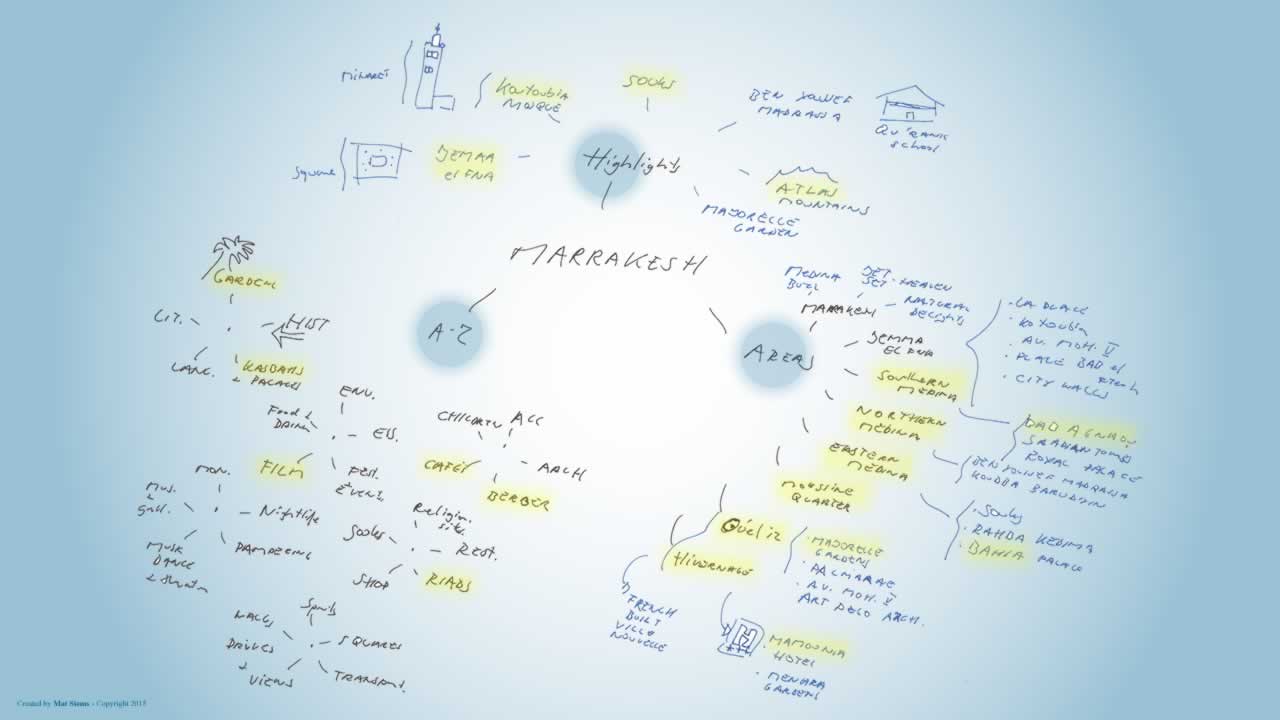 MINARET
KOUTOUBIA
MOSQUE
SOUKS
BEN YOUSEF
MADRASSA
QU'RANIC
SCHOOL
Square
DJEMAA
el FNA
Highlights
ATLAS
MOUNTAINS
MAJORELLE
GARDEN
MARRAKESH
GARDENS
LIT.
HIST
LANG.
KASBAHS
+ PALACES
A-Z
AREAS
MEDINA
BUZZ
JET-HEAVEN
SET
MARRAKESH
NATURAL
DELIGHTS
JEMMA
EL FNA
SOUTHERN
MEDINA
NORTHERN
MEDINA
EASTERN
MEDINA
MOUSSINE
QUARTER
Guéliz
HIVERNAGE
• LA PLACE
• KOTOUBIA
• AV. MOH. V
• PLACE BAB el
• CITY WALLS
BAB AGNAOU
SAADIAN TOMBS
ROYAL PALACE
BEN YOUSEF MADRASSA
KOUBBA BARUDIYN
• Souks
• RAHBA KEDIMA
• BAHIA PALACE
• MAJORELLE
GARDENS
• PALMARAE
• AV. MOH. V
ART DECO ARCH.
FRENCH
BUILT
VILLE
NOUVELLE
H
• MAMOUNIA
HOTEL
• MENARA
GARDENS
ENV.
Food &
DRINK
ESS.
FILM
FEST.
EVENTS
CHILDREN
ACC
CAFÉS
ARCH
BERBER
MON.
MUS.
&
GALL.
Nightlife
MUSIC
DANCE
PAMPERING
Religion.
Souks
REST.
SHOP
RIADS
Sports
WALKS
DRIVES
+
VIEWS
SQUARES
TRANSPORT.
Created by Mat Siems - Copyright 2015